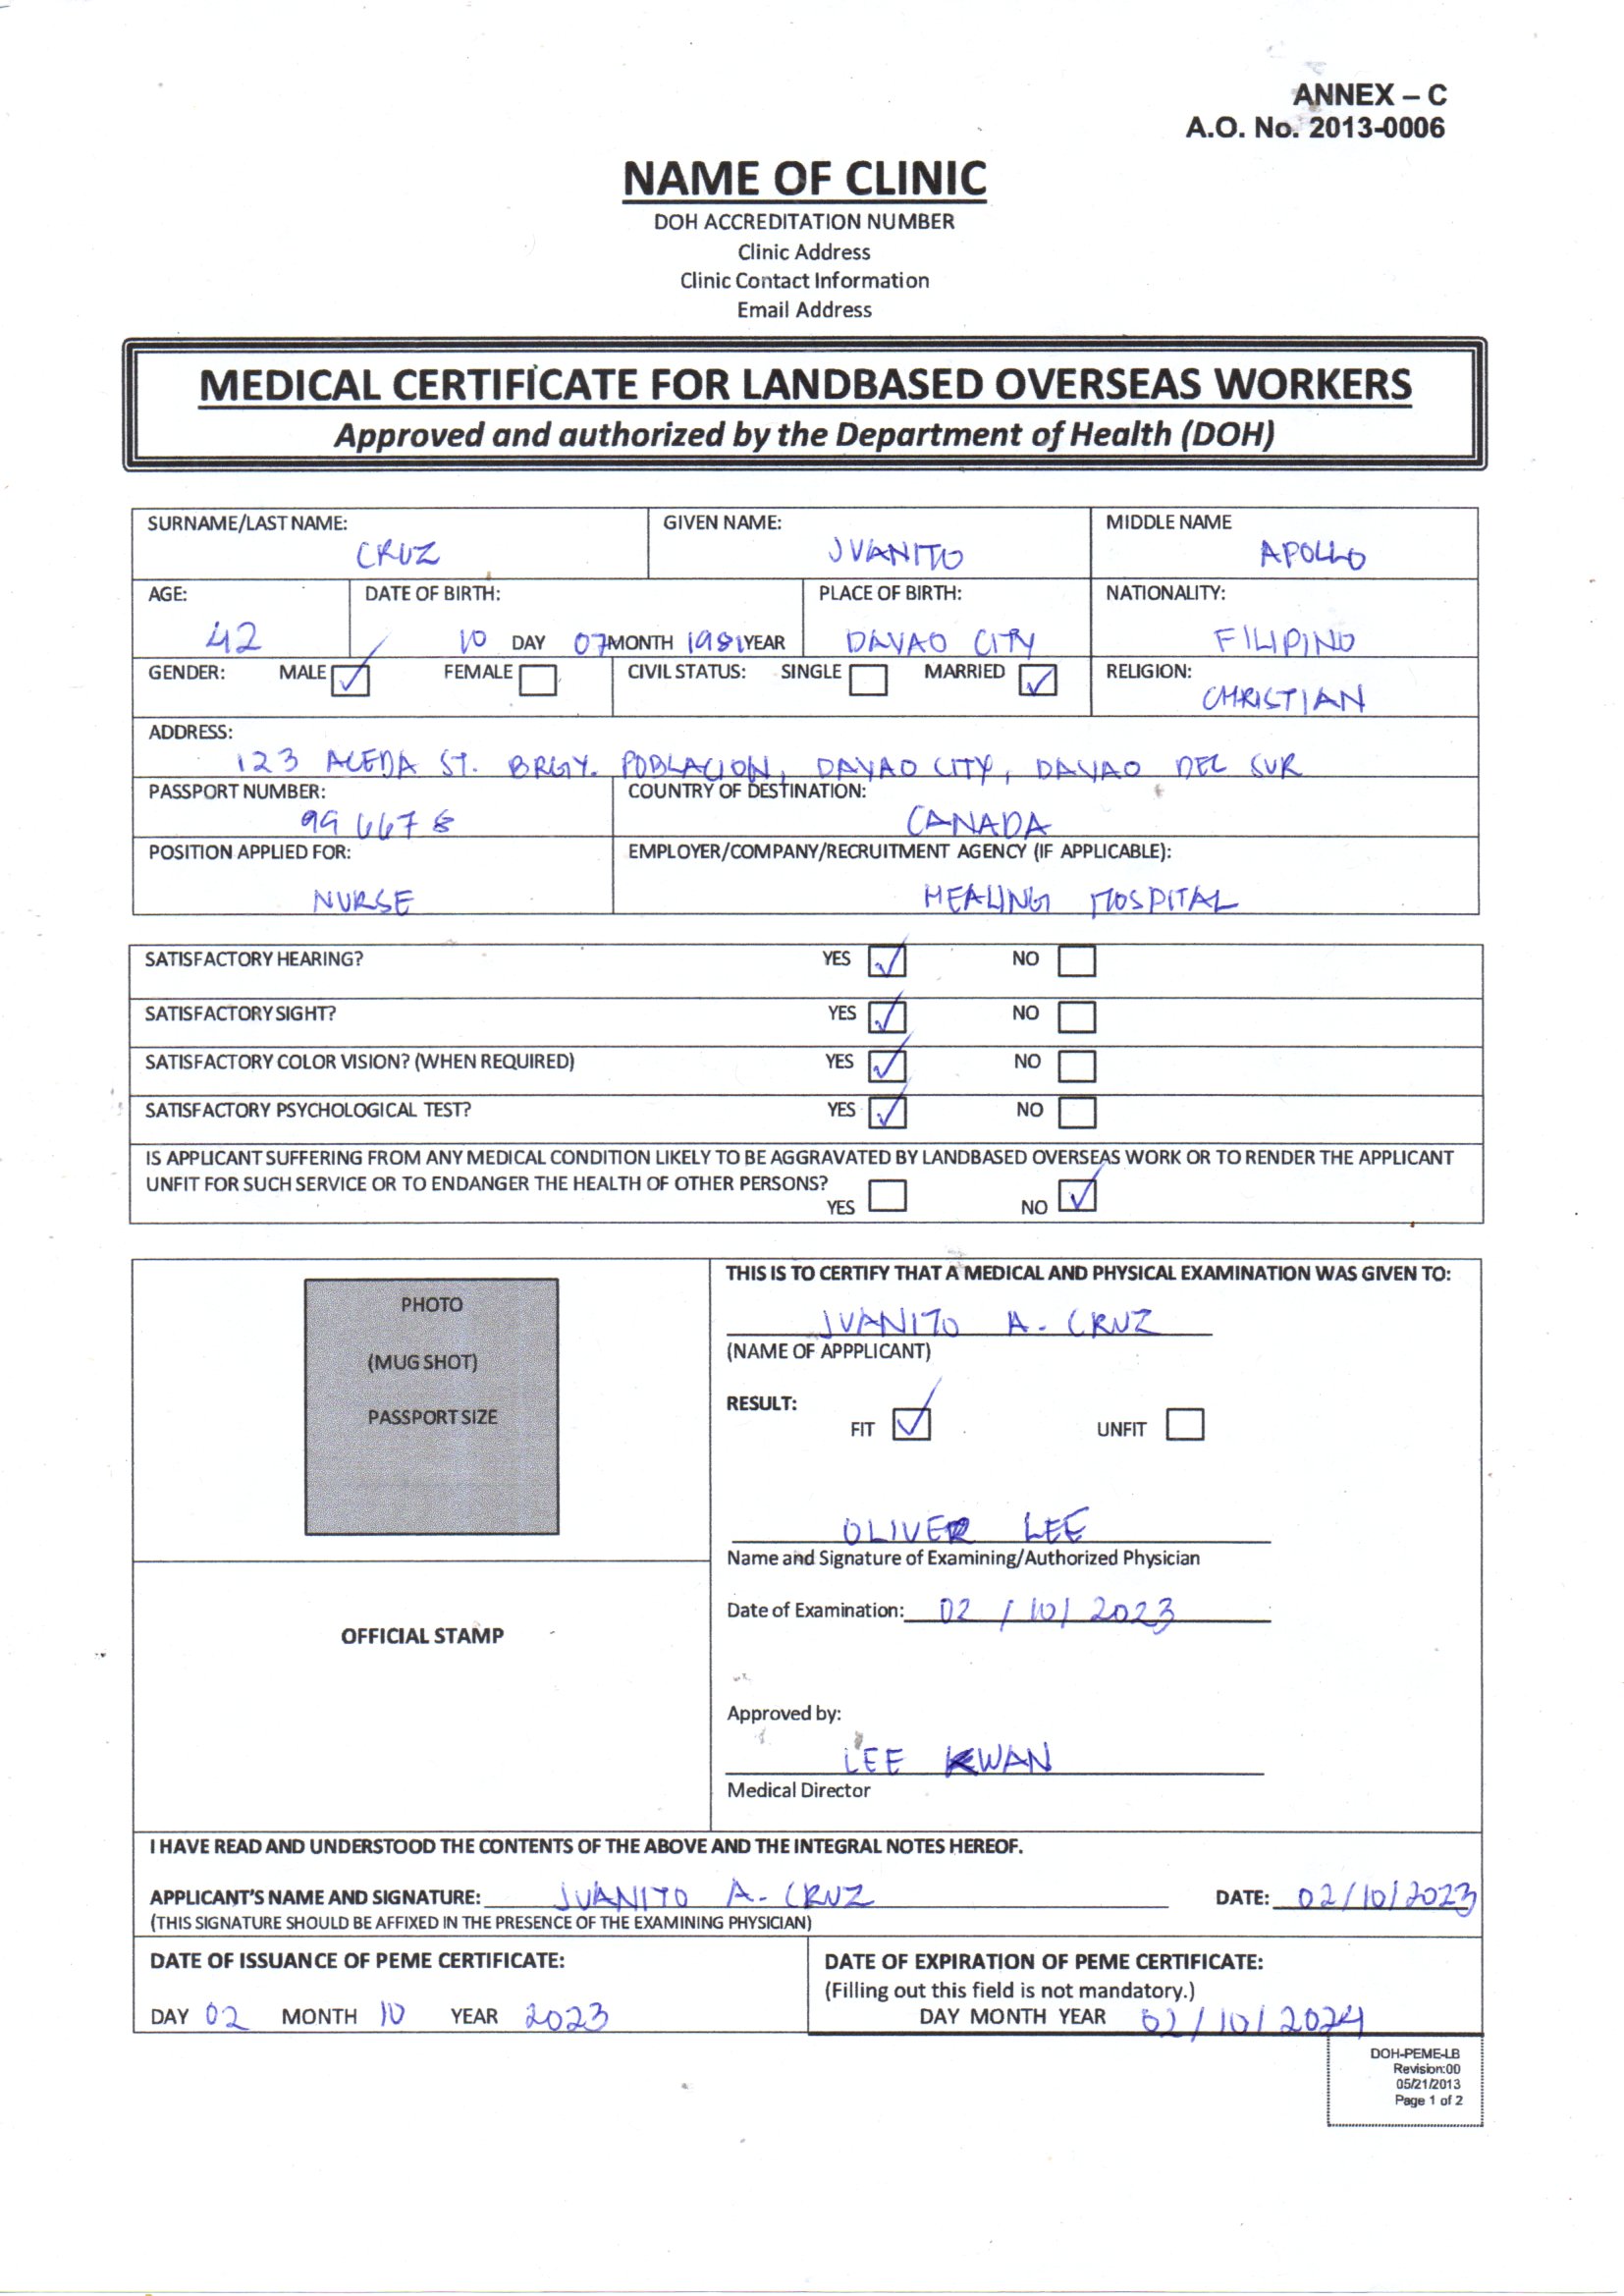 ANNEX – C
A.O. No. 2013-0006
NAME OF CLINIC
DOH ACCREDITATION NUMBER
Clinic Address
Clinic Contact Information
Email Address
MEDICAL CERTIFICATE FOR LANDBASED OVERSEAS WORKERS
Approved and authorized by the Department of Health (DOH)
SURNAME/LAST NAME: GIVEN NAME: MIDDLE NAME
CRUZ JUANITO APOLLO
AGE: DATE OF BIRTH: PLACE OF BIRTH: NATIONALITY:
42 10 DAY 07 MONTH 1981 YEAR DAVAO CITY FILIPINO
GENDER: MALE FEMALE CIVIL STATUS: SINGLE MARRIED RELIGION:
CHRISTIAN
ADDRESS:
123 ACEDA ST. BRGY. POBLACION, DAVAO CITY, DAVAO DEL SUR
PASSPORT NUMBER: COUNTRY OF DESTINATION:
996678 CANADA
POSITION APPLIED FOR: EMPLOYER/COMPANY/RECRUITMENT AGENCY (IF APPLICABLE):
NURSE HEALING HOSPITAL
SATISFACTORY HEARING? YES NO
SATISFACTORY SIGHT? YES NO
SATISFACTORY COLOR VISION? (WHEN REQUIRED) YES NO
SATISFACTORY PSYCHOLOGICAL TEST? YES NO
IS APPLICANT SUFFERING FROM ANY MEDICAL CONDITION LIKELY TO BE AGGRAVATED BY LANDBASED OVERSEAS WORK OR TO RENDER THE APPLICANT
UNFIT FOR SUCH SERVICE OR TO ENDANGER THE HEALTH OF OTHER PERSONS?
YES NO
PHOTO
(MUG SHOT)
PASSPORT SIZE
OFFICIAL STAMP
THIS IS TO CERTIFY THAT A MEDICAL AND PHYSICAL EXAMINATION WAS GIVEN TO:
JUANITO A. CRUZ
(NAME OF APPPLICANT)
RESULT:
FIT UNFIT
OLIVER LEE
Name and Signature of Examining/Authorized Physician
Date of Examination: 02/10/2023
Approved by:
LEE KWAN
Medical Director
I HAVE READ AND UNDERSTOOD THE CONTENTS OF THE ABOVE AND THE INTEGRAL NOTES HEREOF.
APPLICANT'S NAME AND SIGNATURE: JUANITO A. CRUZ DATE: 02/10/2023
(THIS SIGNATURE SHOULD BE AFFIXED IN THE PRESENCE OF THE EXAMINING PHYSICIAN)
DATE OF ISSUANCE OF PEME CERTIFICATE: DATE OF EXPIRATION OF PEME CERTIFICATE:
(Filling out this field is not mandatory.)
DAY 02 MONTH 10 YEAR 2023 DAY MONTH YEAR 02/10/2024
DOH-PEME-LB
Revision:00
05/21/2013
Page 1 of 2